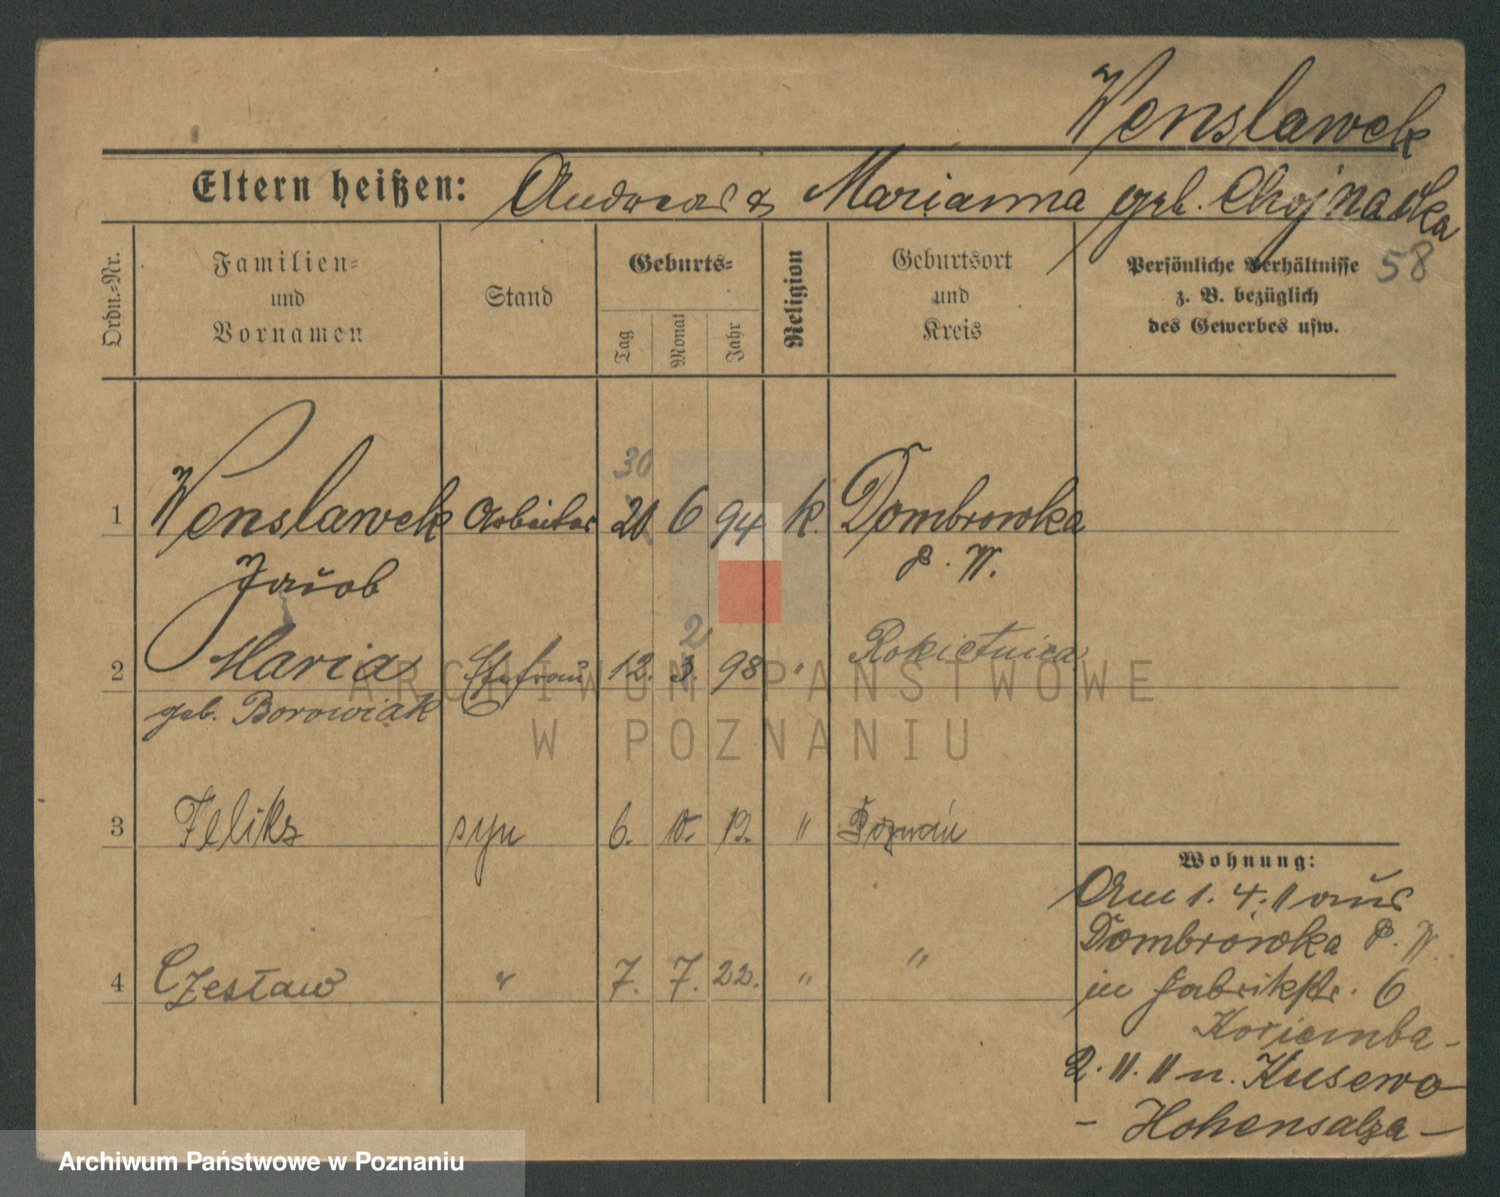 Wenslawek
Eltern heißen: Andreas & Marianna geb. Chojnacka
58
Ordn.-Nr.
Familien- und Vornamen
Stand
Geburts-
Tag
Monat
Jahr
Religion
Geburtsort und Kreis
Persönliche Verhältnisse
z. B. bezüglich
des Gewerbes usw.
30
1 Wenslawek Arbeiter 20 6 94 k. Dombrowka
Jacob P. W.
2
2 Maria Ehefrau 12. 3. 98 " Rokietnica
geb. Borowiak
3 Feliks syn 6. 10. 19. " Poznań
Wohnung:
Am 1. 4. 11 aus
Dombrówka P. W.
4 Czesław " 7. 7. 22. " "
in Fabrikstr. 6
Koziemba -
2. 11. 11 n. Kusewo
- Hohensalza -
ARCHIWUM PAŃSTWOWE
W POZNANIU
Archiwum Państwowe w Poznaniu